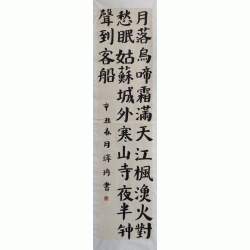 月落烏啼霜滿天江楓漁火對
愁眠姑蘇城外寒山寺夜半钟
聲到客船
辛丑春月書